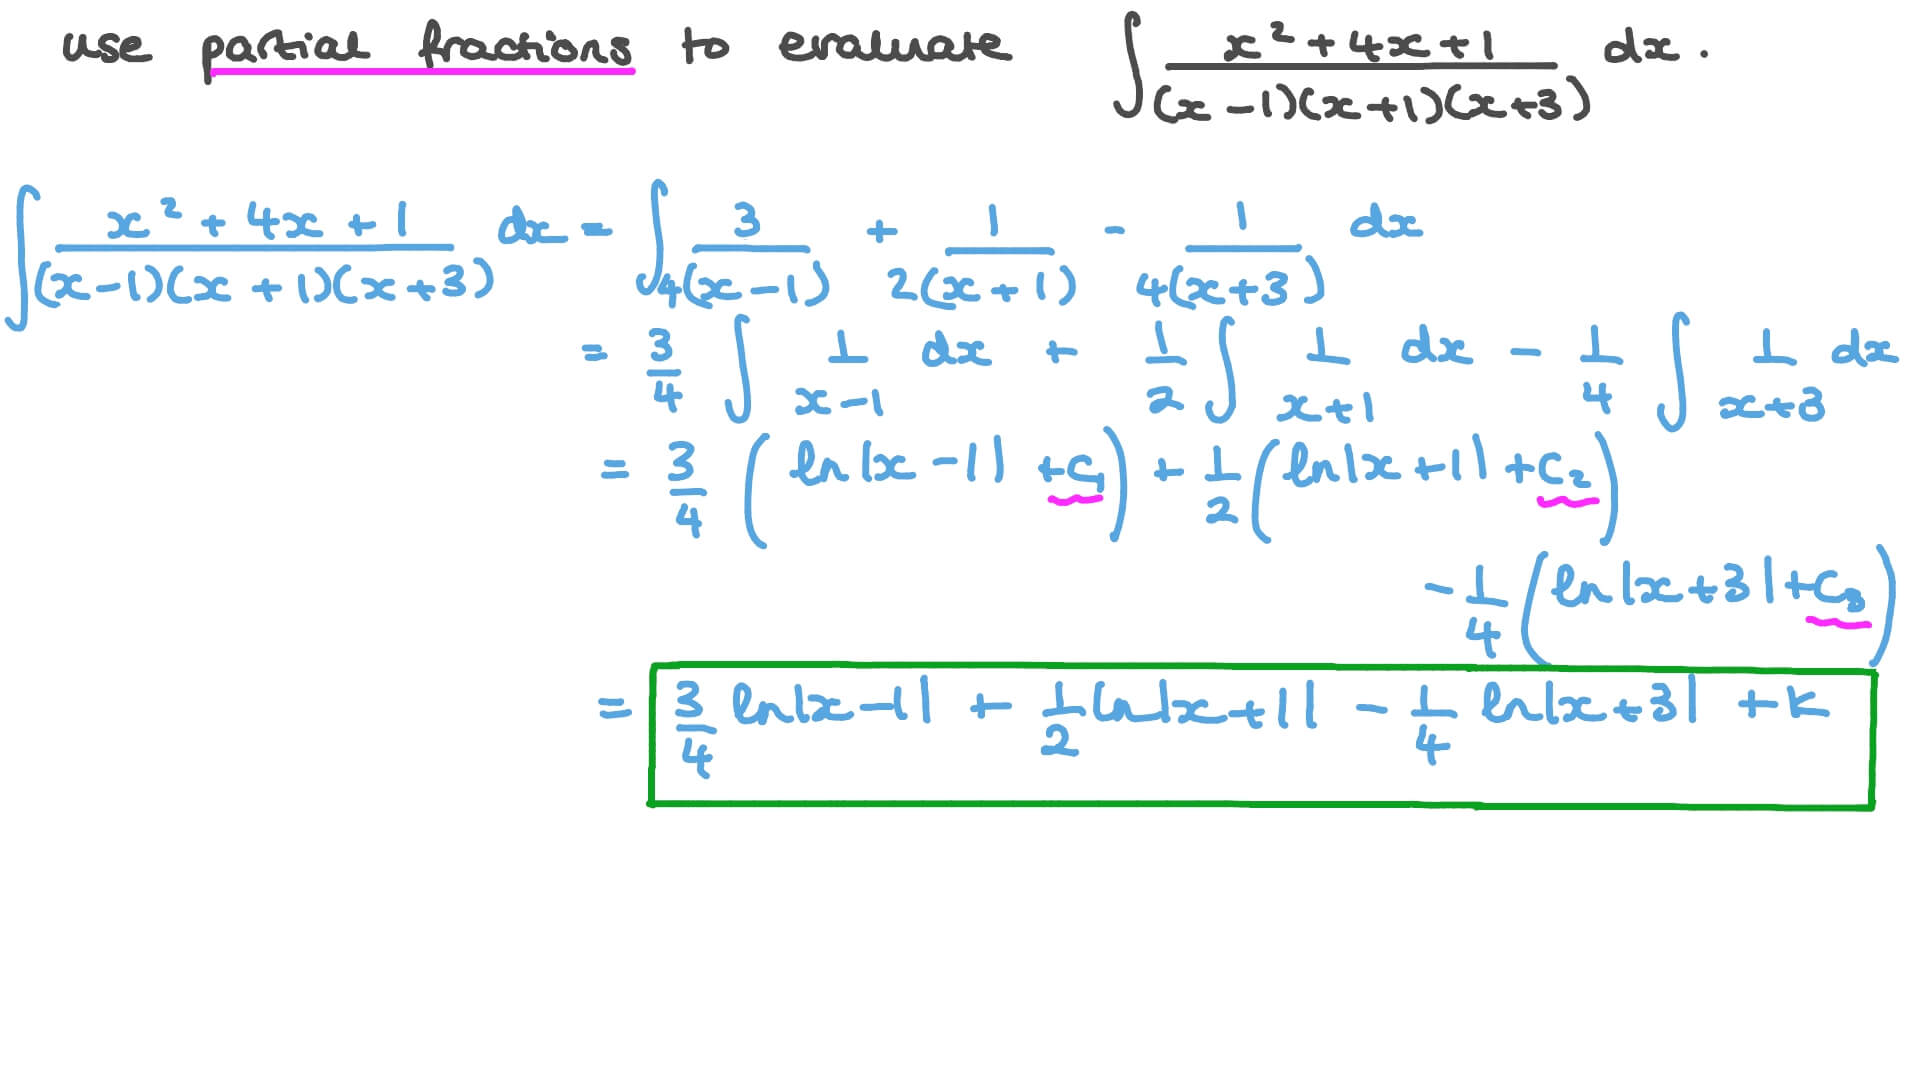 use partial fractions to evaluate ∫ x² + 4x + 1 / (x - 1)(x + 1)(x + 3) dx .
∫ x² + 4x + 1 / (x - 1)(x + 1)(x + 3) dx = ∫ 3 / 4(x - 1) + 1 / 2(x + 1) - 1 / 4(x + 3) dx
= 3/4 ∫ 1 / x - 1 dx + 1/2 ∫ 1 / x + 1 dx - 1/4 ∫ 1 / x + 3 dx
= 3/4 ( ln|x - 1| + C₁ ) + 1/2 ( ln|x + 1| + C₂ )
- 1/4 ( ln|x + 3| + C₃ )
= 3/4 ln|x - 1| + 1/2 ln|x + 1| - 1/4 ln|x + 3| + K